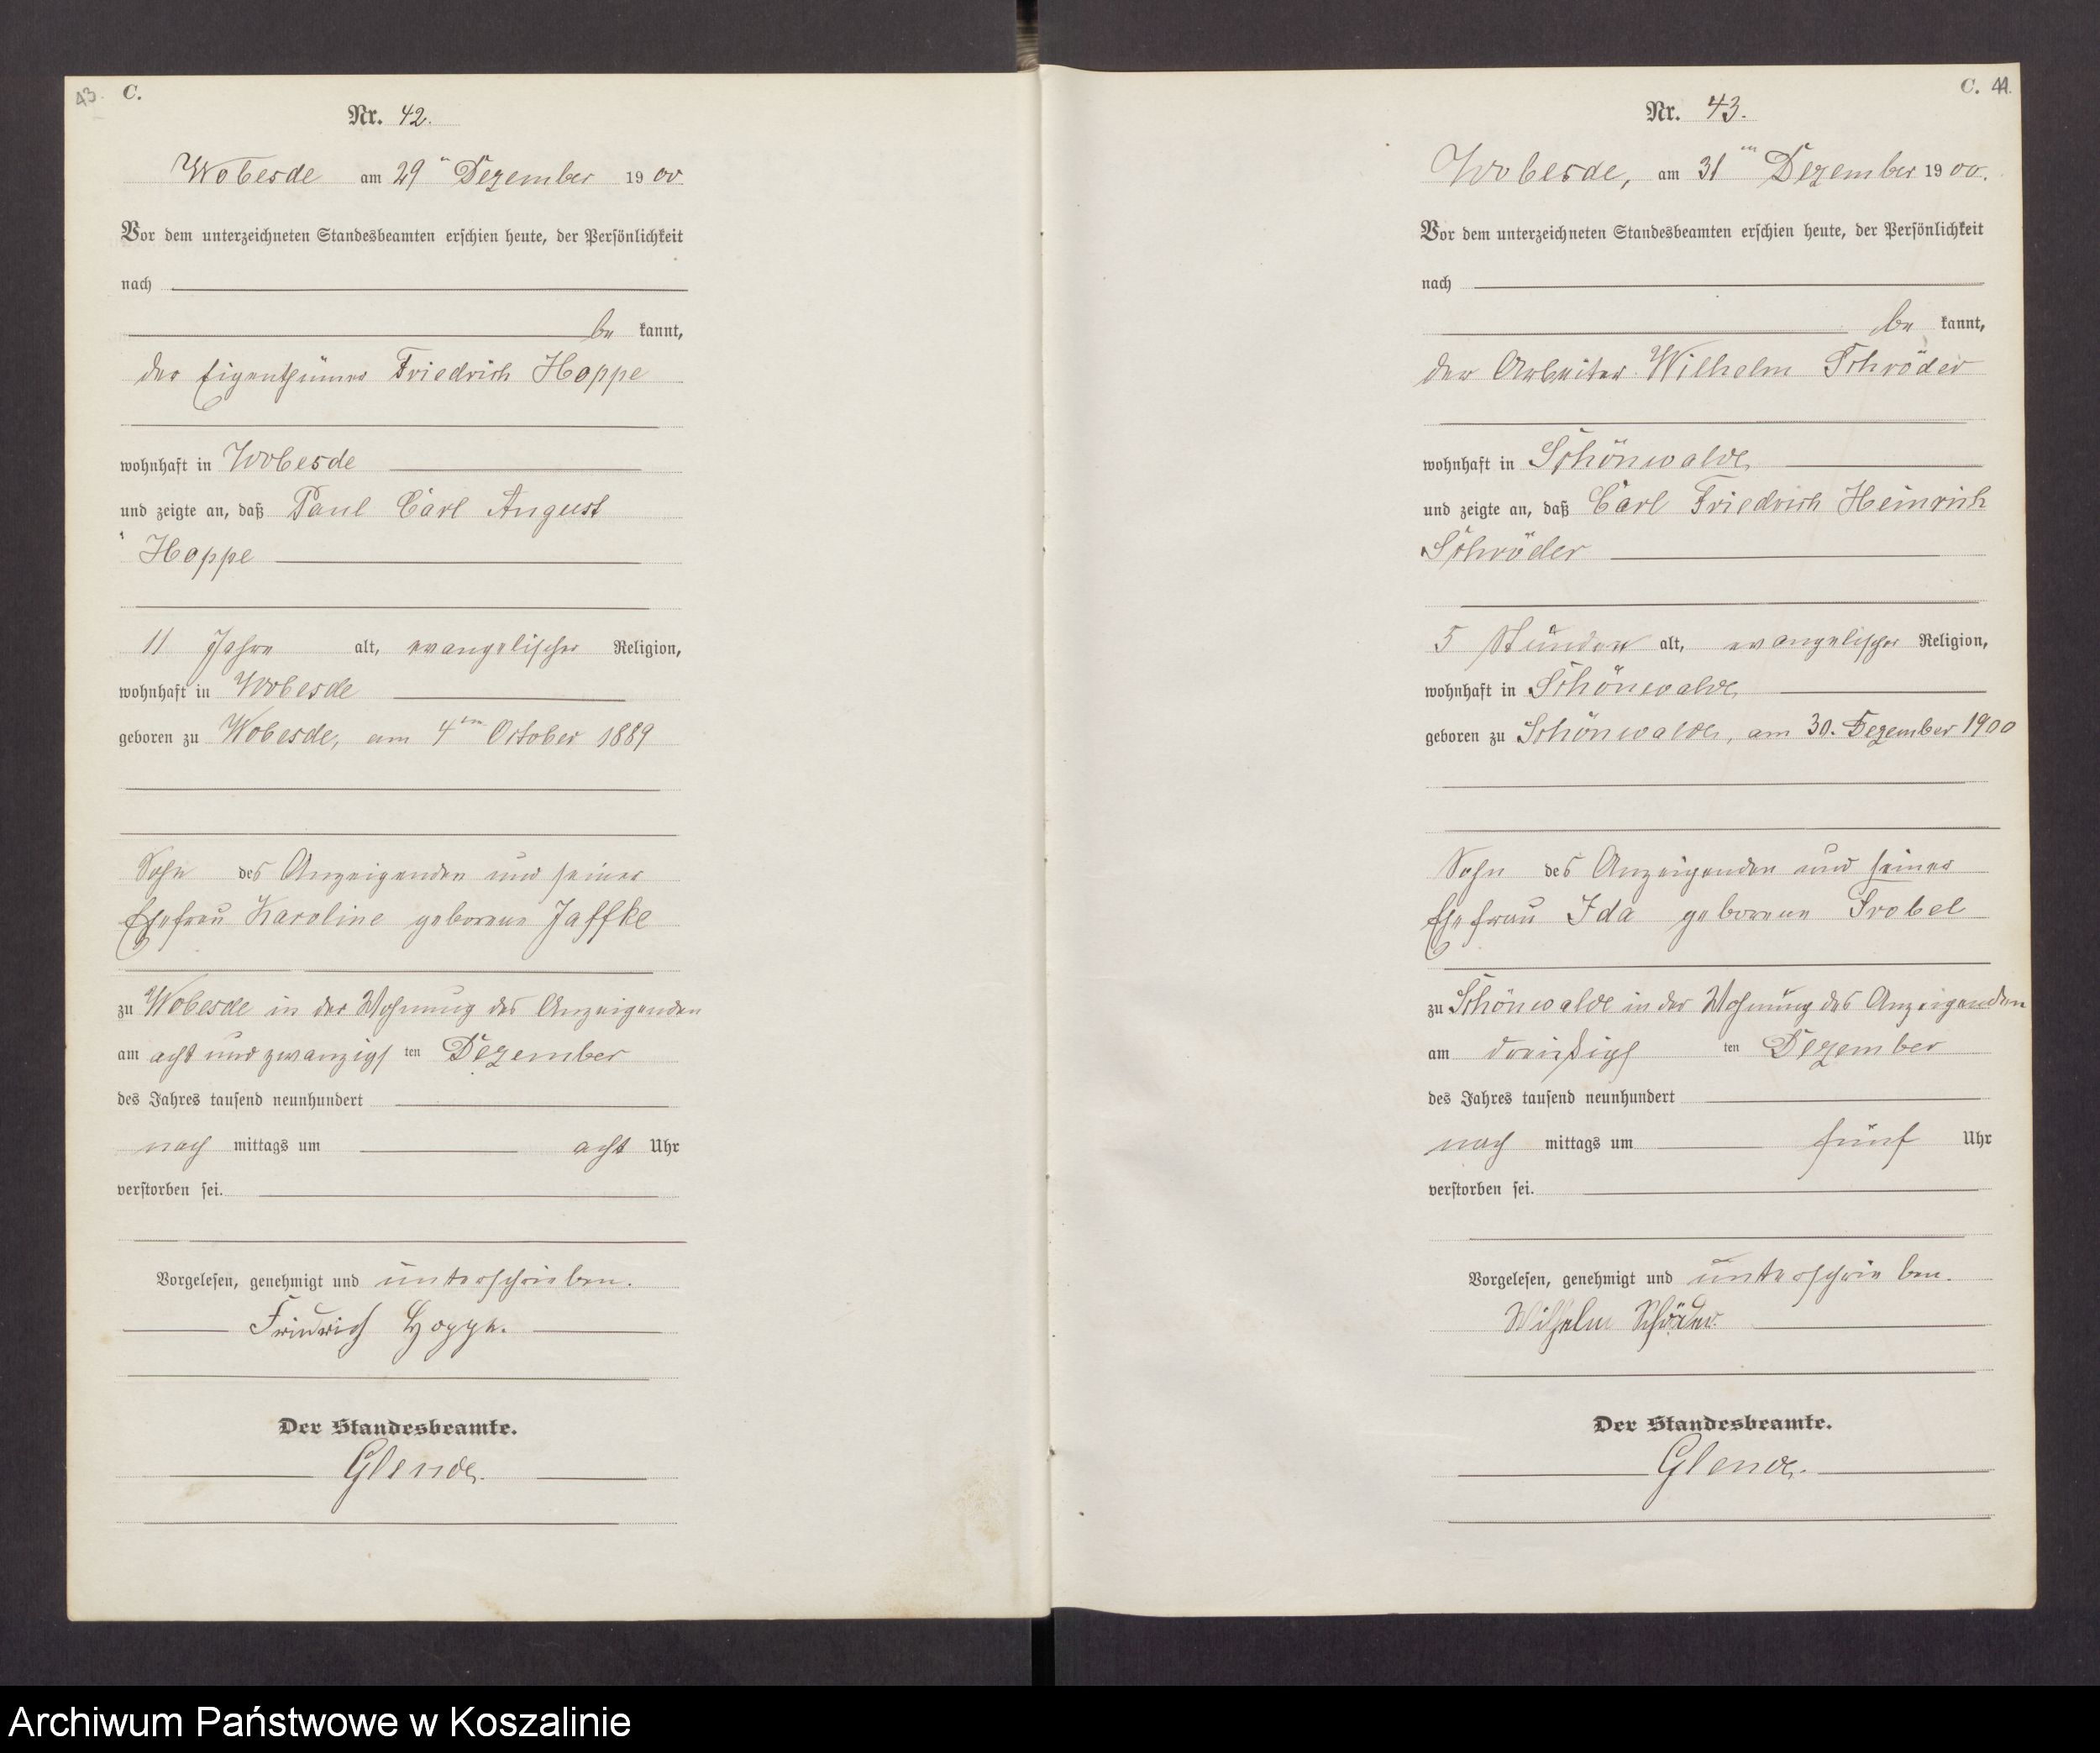 43.
C.
Nr. 42.
Wobesde am 29ten Dezember 1900
Vor dem unterzeichneten Standesbeamten erschien heute, der Persönlichkeit
nach
be kannt,
der Eigenthümer Friedrich Hoppe
wohnhaft in Wobesde
und zeigte an, daß Paul Carl August
Hoppe
11 Jahre alt, evangelischer Religion,
wohnhaft in Wobesde
geboren zu Wobesde, am 4ten October 1889
Sohn des Anzeigenden und seiner
Ehefrau Karoline geborene Jaffke
zu Wobesde in der Wohnung des Anzeigenden
am acht und zwanzigsten Dezember
des Jahres tausend neunhundert
nach mittags um acht Uhr
verstorben sei.
Vorgelesen, genehmigt und unterschrieben.
Friedrich Hoppe.
Der Standesbeamte.
Glende.
C. 44.
Nr. 43.
Wobesde, am 31ten Dezember 1900.
Vor dem unterzeichneten Standesbeamten erschien heute, der Persönlichkeit
nach
be kannt,
der Arbeiter Wilhelm Schröder
wohnhaft in Schönwalde
und zeigte an, daß Carl Friedrich Heinrich
Schröder
5 Stunden alt, evangelischer Religion,
wohnhaft in Schönwalde
geboren zu Schönwalde, am 30. Dezember 1900
Sohn des Anzeigenden und seiner
Ehefrau Ida geborene
zu Schönwalde in der Wohnung des Anzeigenden
am dreißigsten Dezember
des Jahres tausend neunhundert
nach mittags um fünf Uhr
verstorben sei.
Vorgelesen, genehmigt und unterschrieben.
Wilhelm Schröder.
Der Standesbeamte.
Glende.
Archiwum Państwowe w Koszalinie